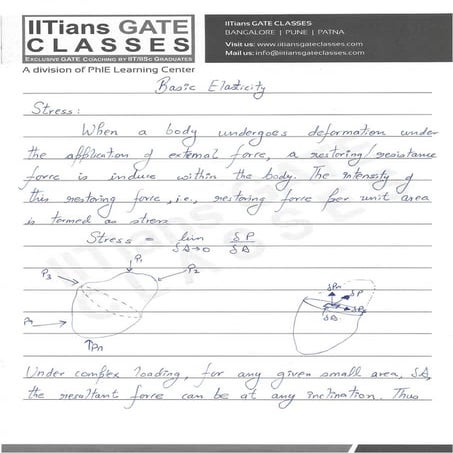 IITians GATE
CLASSES
EXCLUSIVE GATE COACHING BY IIT/IISc GRADUATES
A division of PhIE Learning Center
IITians GATE CLASSES
BANGALORE | PUNE | PATNA
Visit us: www.iitiansgateclasses.com
Mail us: info@iitiansgateclasses.com
Basic Elasticity
Stress:
When a body undergoes deformation under
the application of external force, a restoring/resistance
force is induce within the body. The intensity of
this restoring force, i.e., restoring force per unit area
is termed as stress
Stress = lim δP
δA→0 δA
P1
P2
P3
Pn
δPn
δP
δA
Under complex loading, for any given small area, δA,
the resultant force can be at any inclination. Thus
IITians GATE
CLASSES